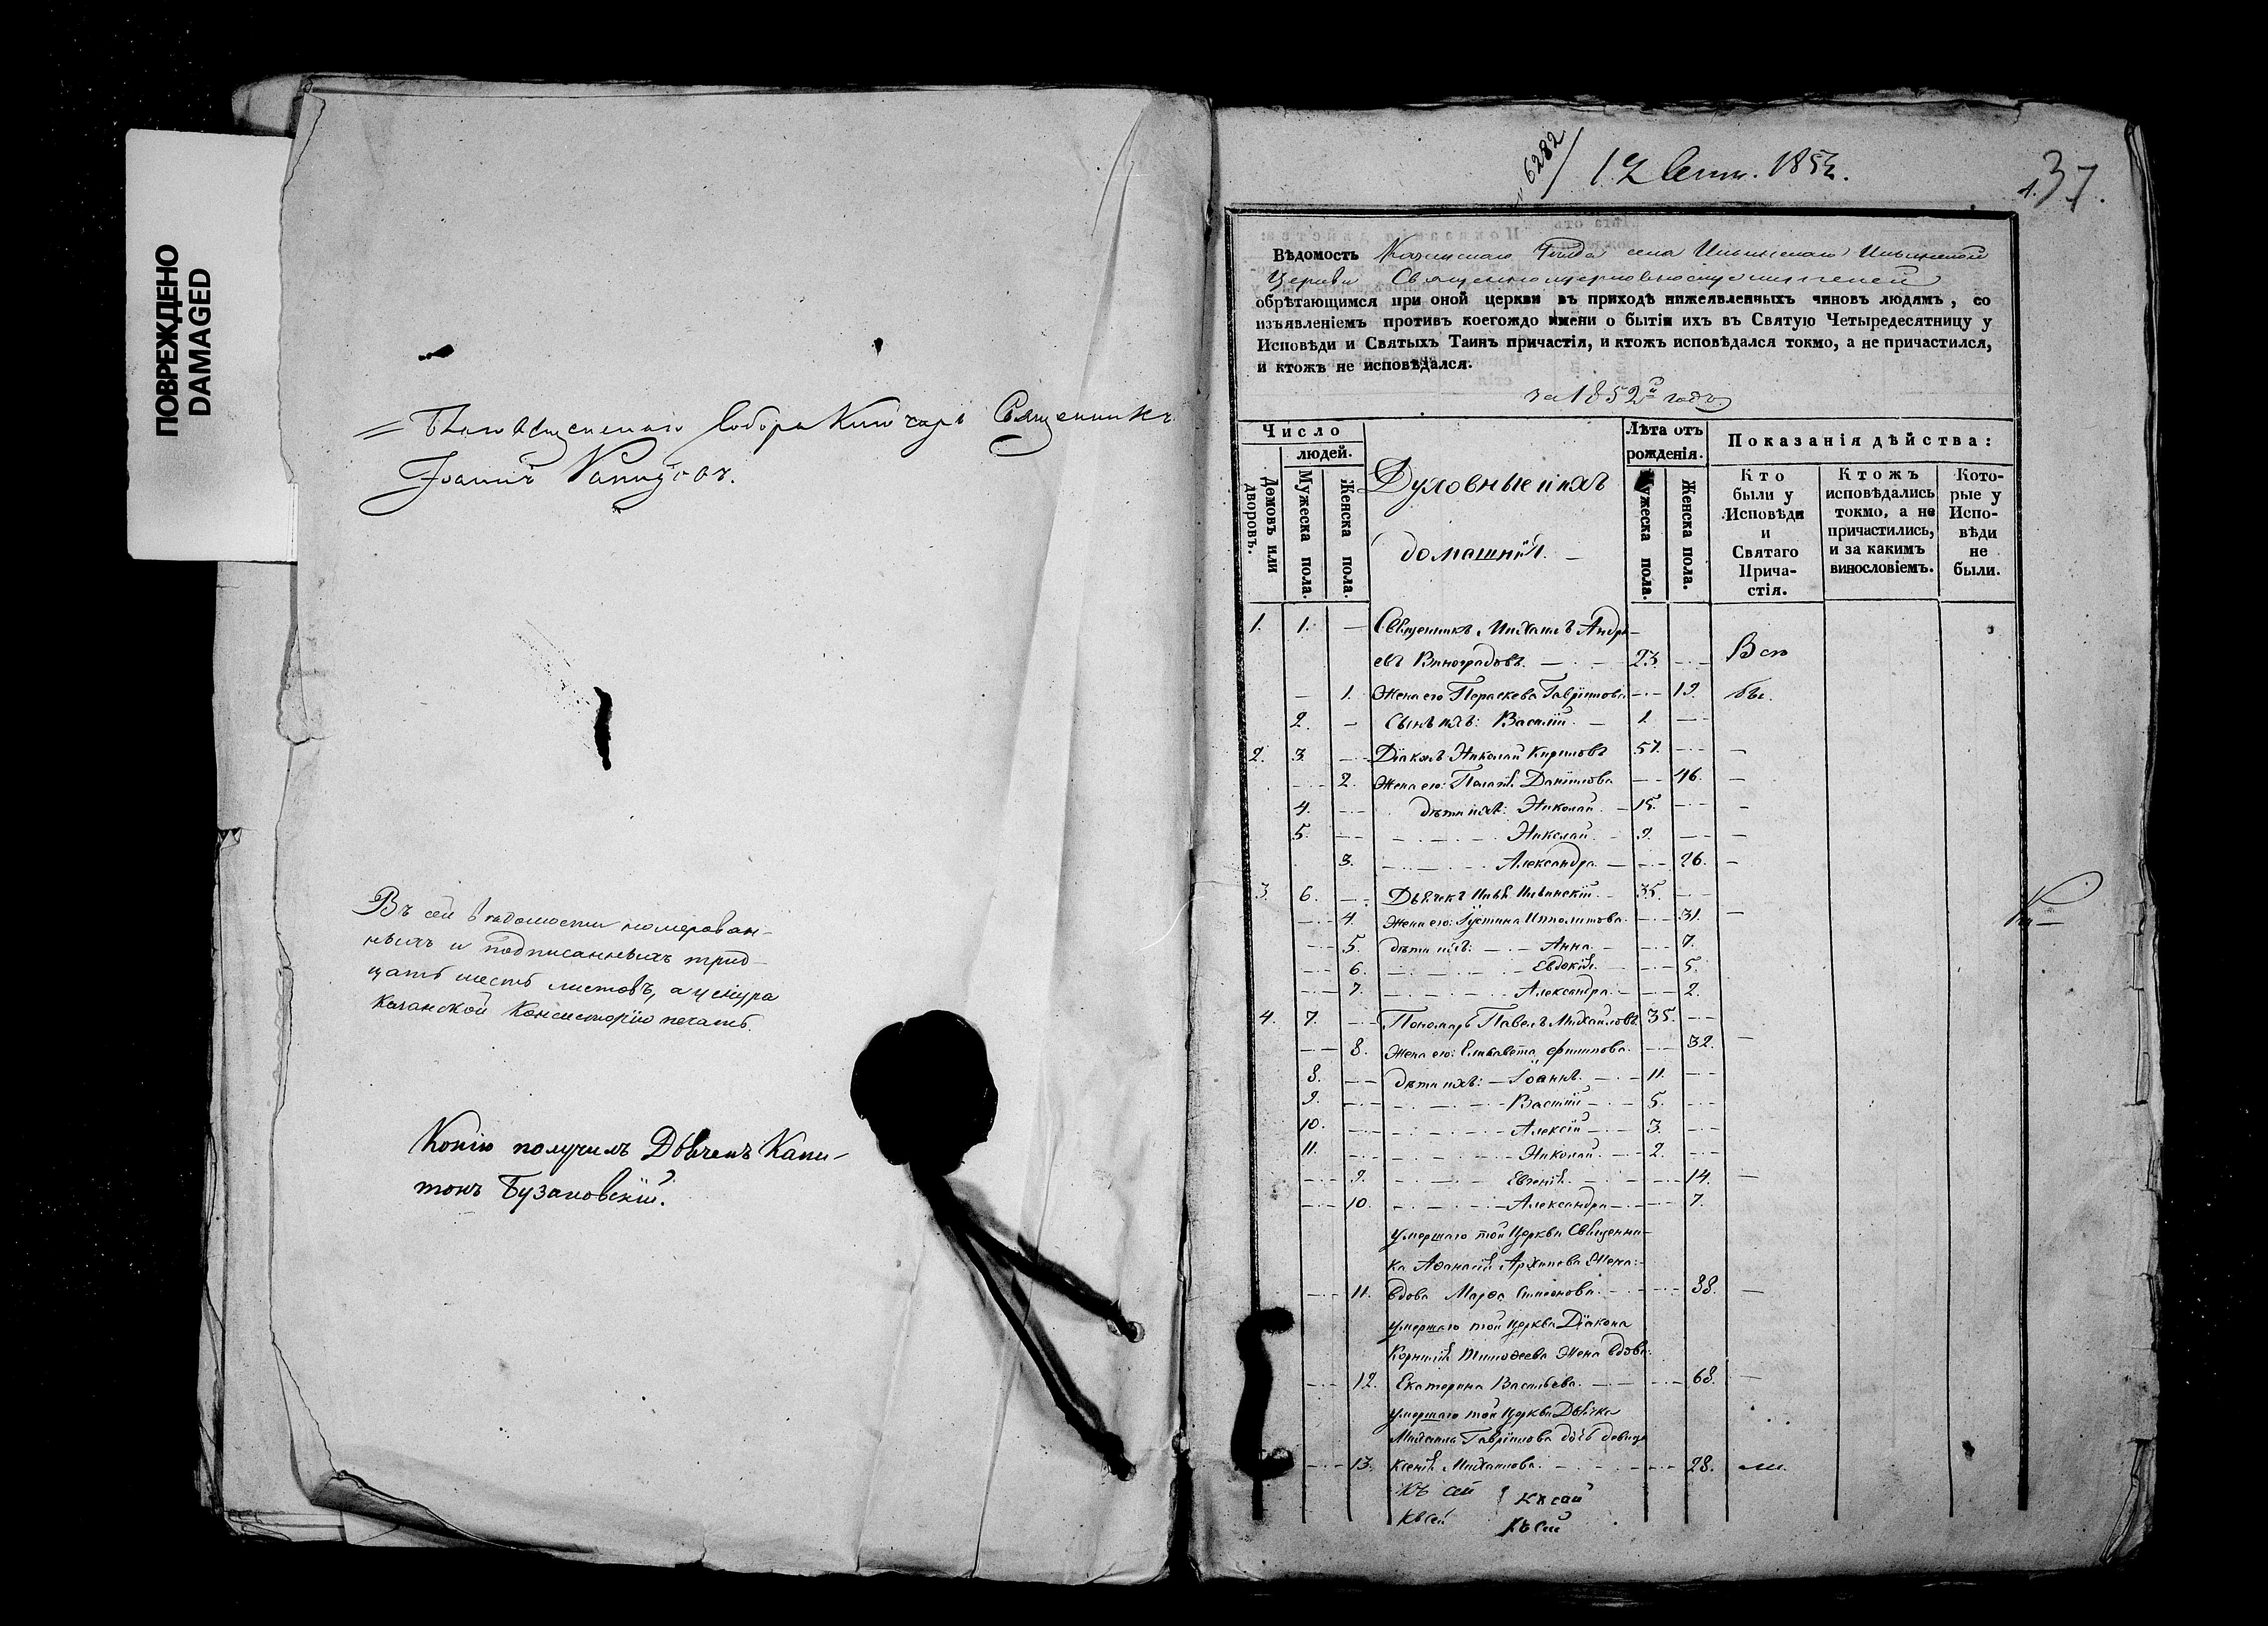 ПОВРЕЖДЕНО
DAMAGED
Собора Ключарь Священникъ
Іоаннъ
Въ сей вѣдомости номерован-
ныхъ и подписанныхъ трид-
цать шесть листовъ, а у снура
Казанской Консисторіи печать.
Копію получилъ Дьячекъ Капи-
тонъ Бузановскій.
6282
12 Сент. 1853.
37.
Вѣдомость Казанскаго Уѣзда села Ильинскаго Ильинской
Церкви Священноцерковнослужителей
обрѣтающимся при оной церкви въ приходѣ нижеявленныхъ чиновъ людямъ, со
изъявленіемъ противъ коегождо имени о бытіи ихъ въ Святую Четыредесятницу у
Исповѣди и Святыхъ Таинъ причастія, и ктожъ исповѣдался токмо, а не причастился,
и ктожъ не исповѣдался.
за 1852й годъ
Число
людей.
Домовъ или дворовъ.
Мужеска пола.
Женска пола.
Духовные и ихъ
домашнія. —
Лѣта отъ
рожденія.
Мужеска пола.
Женска пола.
Показанія дѣйства:
Кто
были у
Исповѣди
и
Святаго
Прича-
стія.
Ктожъ
исповѣдались
токмо, а не
причастились,
и за какимъ
винословіемъ.
Кото-
рые у
Испо-
вѣди
не
были.
1. 1. — Священникъ Михаилъ Андре-
евъ Виноградовъ. — 23. — Всѣ
— 1. Жена его Пераскева Гаврііллова — 19. бы.
2. — Сынъ ихъ: Василій. — 1. —
2. 3. — Діаконъ Николай Кириловъ 57. — —
— 2. Жена его: Пелагія Даніилова — 46. —
4. — дѣти ихъ: Николай. — 15. — —
5. — Николай. 9. — —
3. — Александра. — 26. —
3. 6. — Дьячекъ Илья Ильинскій. 35. —
— 4. Жена его: Іустина Ипполитова. — 31. —
— 5. дѣти ихъ: — Анна. — 7.
— 6. — Евдокія. — 5.
— 7. — Александра. — 2.
4. 7. — Пономарь Павелъ Михайловъ 35. —
— 8. Жена его: Елисавета Филипова. — 32. —
8. — дѣти ихъ: — Іоаннъ. — 11. —
9. — Василій — 5. —
10. — Алексій — 3. —
11. — Николай. — 2. —
— 9. — Евгенія. — 14. —
— 10. — Александра — 7.
умершаго той Церкви Священни-
ка Аѳанасія Архипова Жена:
— 11. вдова Марѳа Симеонова. — 38. —
умершаго той церкви Діакона
Корнилія Тимоѳеева Жена вдова
— 12. Екатерина Васильева. — 68. —
умершаго той церкви Дьячка
Михаила Гаврііллова дочь девица
— 13. Ксенія Михайлова. — 28. ли.
Къ сей Къ сей
Къ сей Къ сей